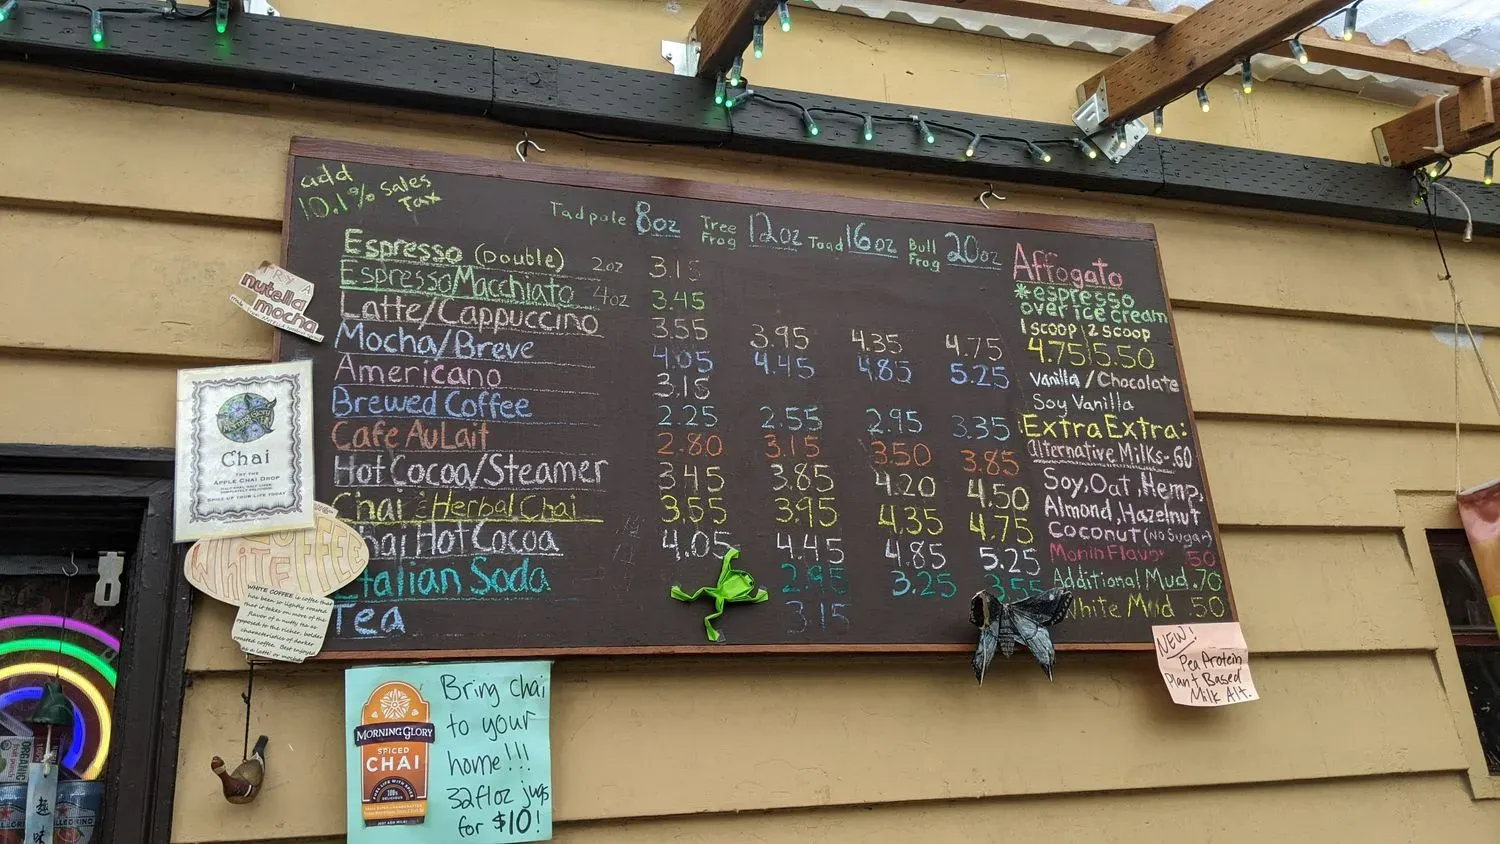 add
10.1% Sales
Tax
Tadpole 8oz Tree Frog 12oz Toad 16oz Bull Frog 20oz
Espresso (Double) 2oz 3.15
Espresso Macchiato 4oz 3.45
Latte/Cappuccino 3.55 3.95 4.35 4.75
Mocha/Breve 4.05 4.45 4.85 5.25
Americano 3.15
Brewed Coffee 2.25 2.55 2.95 3.35
Cafe AuLait 2.80 3.15 3.50 3.85
Hot Cocoa/Steamer 3.45 3.85 4.20 4.50
Chai & Herbal Chai 3.55 3.95 4.35 4.75
hai Hot Cocoa 4.05 4.45 4.85 5.25
Italian Soda 2.95 3.25 3.55
Tea 3.15
Affogato
*espresso
over ice cream
1 scoop | 2 scoop
4.75 | 5.50
Vanilla / Chocolate
Soy Vanilla
Extra Extra:
alternative Milks-60
Soy, Oat, Hemp,
Almond, Hazelnut
Coconut (No Sugar)
Monin Flavor 50
Additional Mud .70
White Mud .50
NEW!
Pea Protein
Plant Based
Milk Alt.
TRY A
nutella
mocha
Chai
TRY THE
APPLE CHAI DROP
SPICE UP YOUR LIFE TODAY
WHITE COFFEE
WHITE COFFEE is coffee that
has been so lightly roasted
that it takes on more of the
flavor of a nutty tea as
opposed to the richer, bolder
characteristics of darker
roasted coffee. Best enjoyed
as a latte! or mocha
MORNING GLORY
SPICED
CHAI
100%
DELICIOUS
Bring Chai
to your
home!!!
32floz jugs
for $10!
ORGANIC